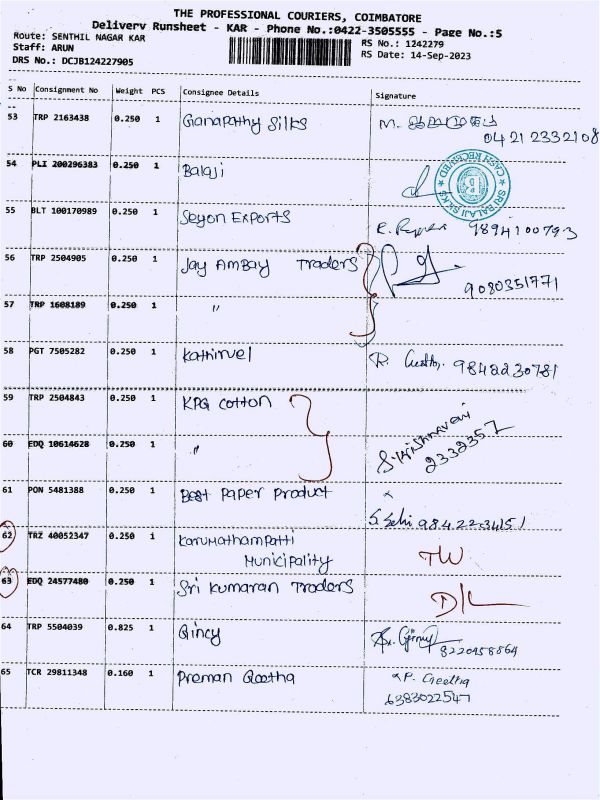 THE PROFESSIONAL COURIERS, COIMBATORE
Delivery Runsheet - KAR - Phone No.:0422-3505555 - Page No.:5
Route: SENTHIL NAGAR KAR
Staff: ARUN
DRS No.: DCJB124227905
RS No.: 1242279
RS Date: 14-Sep-2023
S No Consignment No Weight PCS Consignee Details Signature
53 TRP 2163438 0.250 1 Ganapathy Silks M.
0421 2332108
54 PLI 200296383 0.250 1 Balaji
SRI BALAJI SILKS ★ CASH RECEIVED ★ B
55 BLT 100170989 0.250 1 Seyon Exports R. 9894100793
56 TRP 2504905 0.250 1 Jay Ambay Traders
9080351771
57 TRP 1608189 0.250 1 "
58 PGT 7505282 0.250 1 Kathirvel R. Geetha. 9848230781
59 TRP 2504843 0.250 1 KPG Cotton
S. Krishnaveni
2332357
60 EDQ 10614628 0.250 1 "
61 PON 5481388 0.250 1 Best Paper Product
S. Selvi 9842234151
62 TRZ 40052347 0.250 1 Karumathampatti
Municipality TW
63 EDQ 24577480 0.250 1 Sri Kumaran Traders D/L
64 TRP 5504039 0.825 1 Qincy
8220458864
65 TCR 29811348 0.160 1 Preman Geetha P. Geetha
6383022547